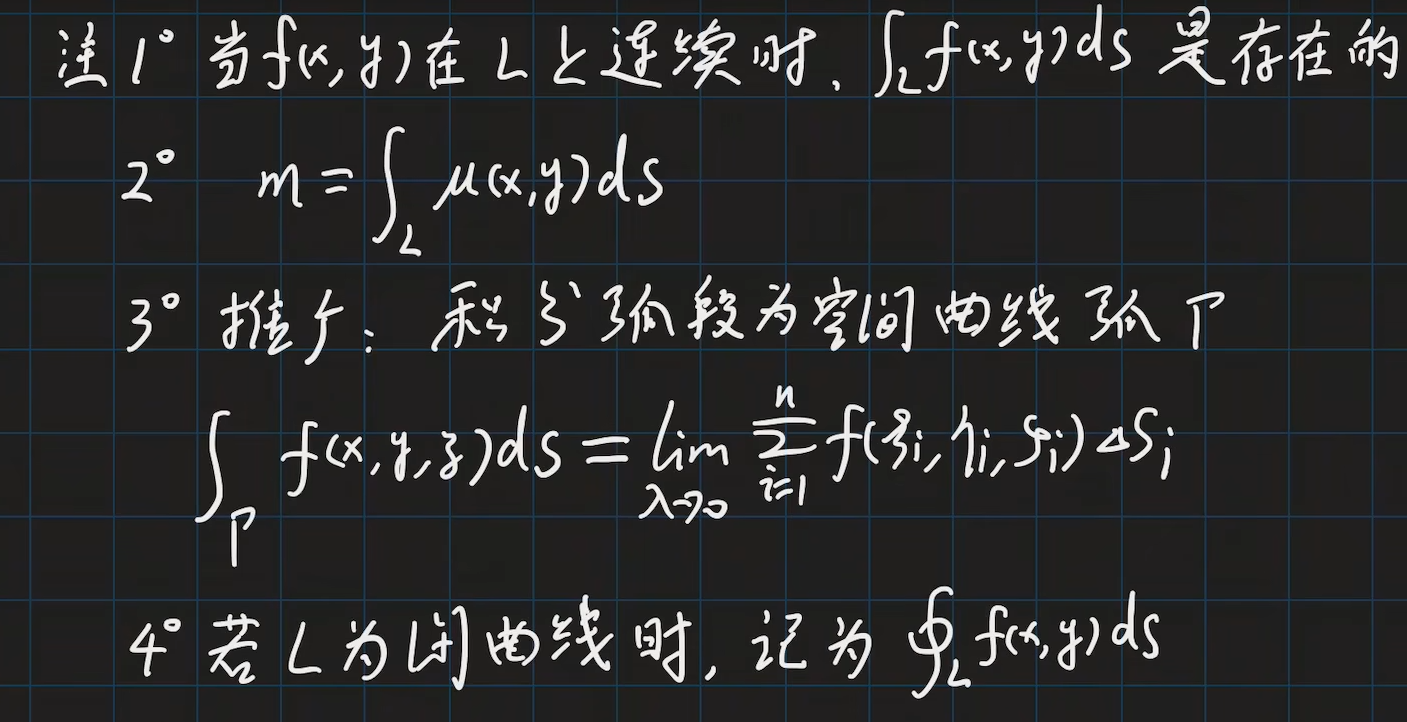 注 1° 当f(x,y)在 L 上连续时, ∫_L f(x,y)ds 是存在的
2° m = ∫_L μ(x,y)ds
3° 推广: 积分弧段为空间曲线弧 Γ
∫_Γ f(x,y,z)ds = lim_{λ→0} Σ_{i=1}^{n} f(ξi, ηi, ζi) ΔSi
4° 若 L 为闭曲线时, 记为 ∮_L f(x,y)ds